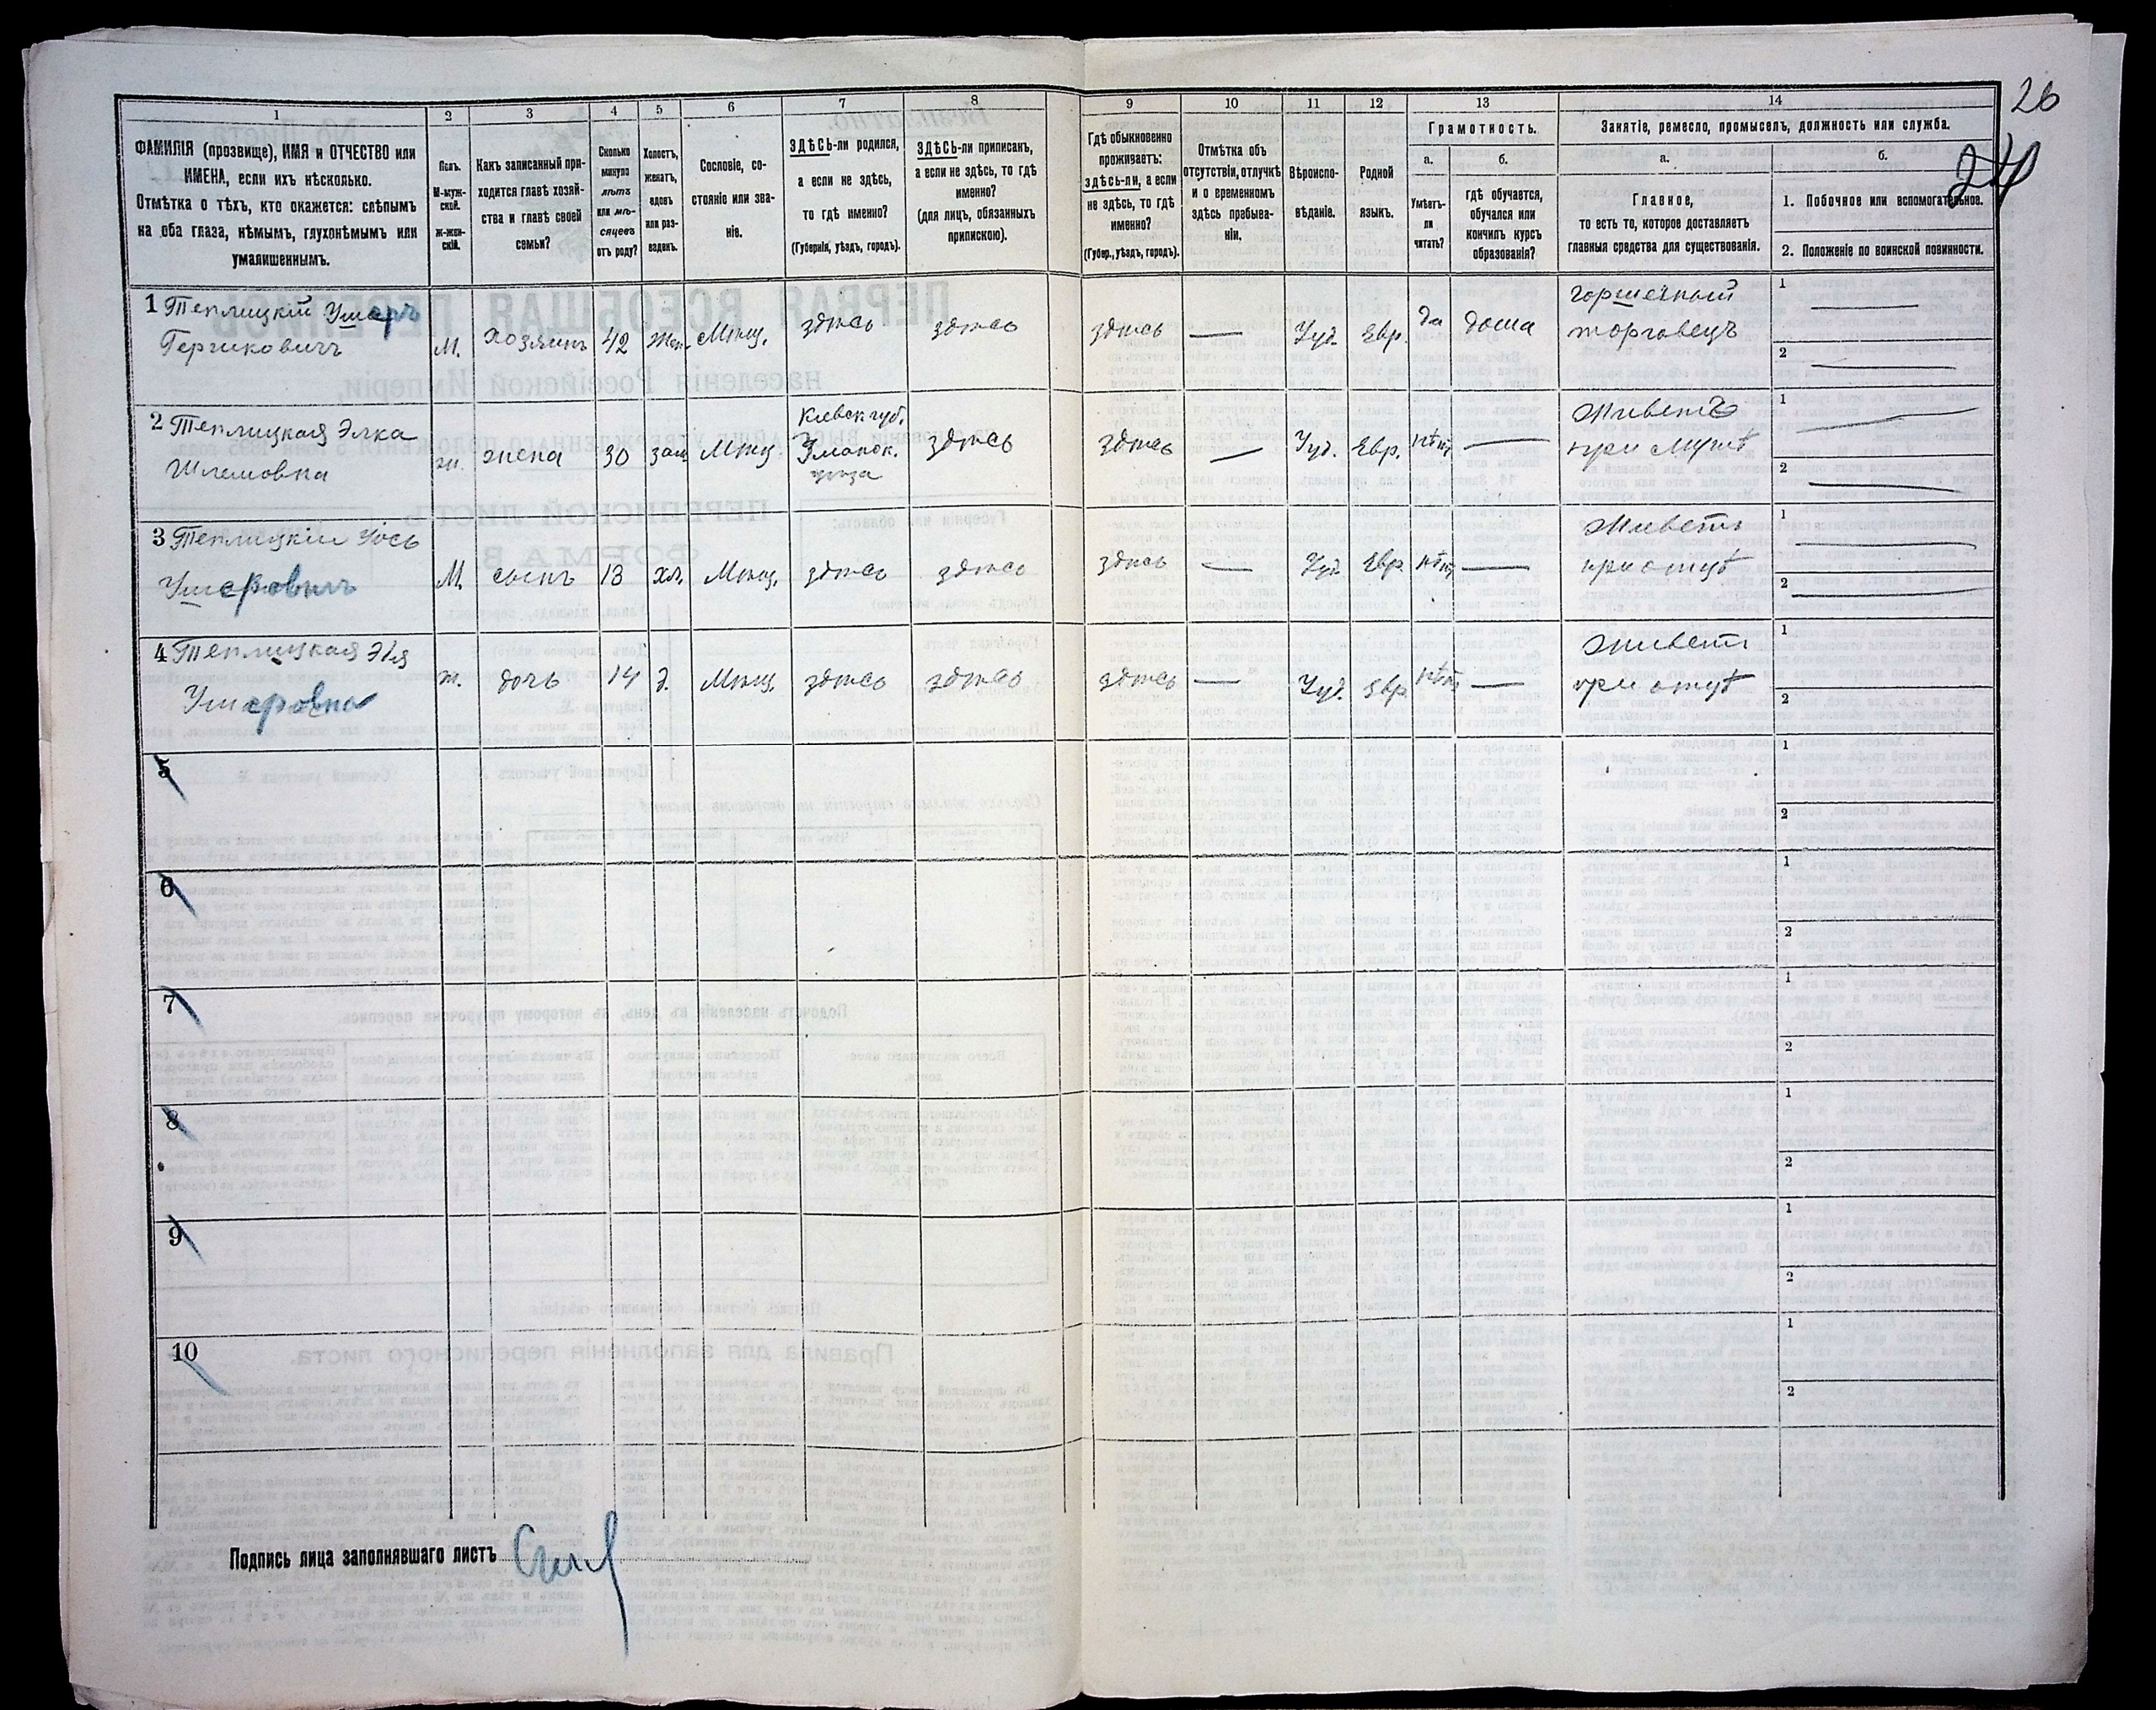 26
24
1
2
3
4
5
6
7
8
9
10
11
12
13
14
ФАМИЛІЯ (прозвище), ИМЯ и ОТЧЕСТВО или
ИМЕНА, если ихъ нѣсколько.
Отмѣтка о тѣхъ, кто окажется: слѣпымъ
на оба глаза, нѣмымъ, глухонѣмымъ или
умалишеннымъ.
Полъ.
М-муж-
ской.
Ж-жен-
скій.
Какъ записанный при-
ходится главѣ хозяй-
ства и главѣ своей
семьи?
Сколько
минуло
лѣтъ
или мѣ-
сяцевъ
отъ роду?
Холостъ,
женатъ,
вдовъ
или раз-
веденъ.
Сословіе, со-
стояніе или зва-
ніе.
ЗДѢСЬ-ли родился,
а если не здѣсь,
то гдѣ именно?
(Губернія, уѣздъ, городъ).
ЗДѢСЬ-ли приписанъ,
а если не здѣсь, то гдѣ
именно?
(для лицъ, обязанныхъ
припискою).
Гдѣ обыкновенно
проживаетъ:
здѣсь-ли, а если
не здѣсь, то гдѣ
именно?
(Губер., уѣздъ, городъ).
Отмѣтка объ
отсутствіи, отлучкѣ
и о временномъ
здѣсь пребыва-
ніи.
Вѣроиспо-
вѣданіе.
Родной
языкъ.
Грамотность.
а.
Умѣетъ-
ли
читать?
б.
гдѣ обучается,
обучался или
кончилъ курсъ
образованія?
Занятіе, ремесло, промыселъ, должность или служба.
а.
Главное,
то есть то, которое доставляетъ
главныя средства для существованія.
б.
1. Побочное или вспомогательное.
2. Положеніе по воинской повинности.
1 Теплицкій Ушеръ
Гершковичъ
М. хозяинъ 42 Жен. Мѣщ. здѣсь здѣсь здѣсь — Іуд. Евр. да дома
горшечный
торговецъ
1
2
2 Теплицкая Элка
Шлемовна
ж. жена 30 зам. Мѣщ.
Кіевск губ.
Уманск.
уѣзда
здѣсь здѣсь — Іуд. Евр. нѣтъ —
Живетъ
при мужѣ
1
2
3 Теплицкій Іось
Ушеровичъ
М. сынъ 13 хл. Мѣщ. здѣсь здѣсь здѣсь — Іуд. Евр. нѣтъ —
Живетъ
при отцѣ
1
2
4 Теплицкая
Ушеровна
ж. дочь 14 д. Мѣщ. здѣсь здѣсь здѣсь — Іуд. Евр. нѣтъ —
Живетъ
при отцѣ
1
2
5
1
2
6
1
2
7
1
2
8
1
2
9
1
2
10
1
2
Подпись лица заполнявшаго листъ